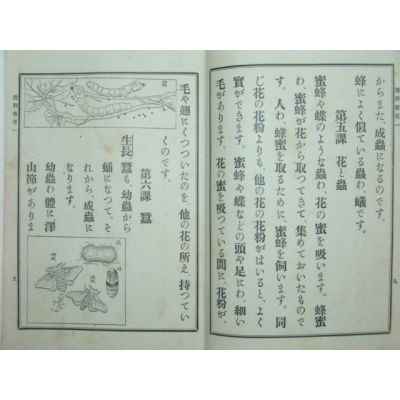 からまた、成蟲になるのです。
蜂によく似ている蟲わ、蟻です。
第五課 花と蟲
蜜蜂や蝶のような蟲わ、花の蜜を吸います。蜂蜜
わ、蜜蜂が花から取つてきて、集めておいたもので
す。人わ、蜂蜜を取るために、蜜蜂を飼います。同
じ花の花粉よりも、他の花の花粉がはいると、よく
實ができます。蜜蜂や蝶などの頭や足にわ、細い
毛があります。花の蜜を吸つている間に、花粉が、
八
毛や翅にくつついたのを、他の花の所え、持つてい
くのです。
第六課 蠶
生長 蠶も幼蟲から
蛹になつて、そ
れから、成蟲に
なります。
幼蟲わ、體に澤
山節がありま
九